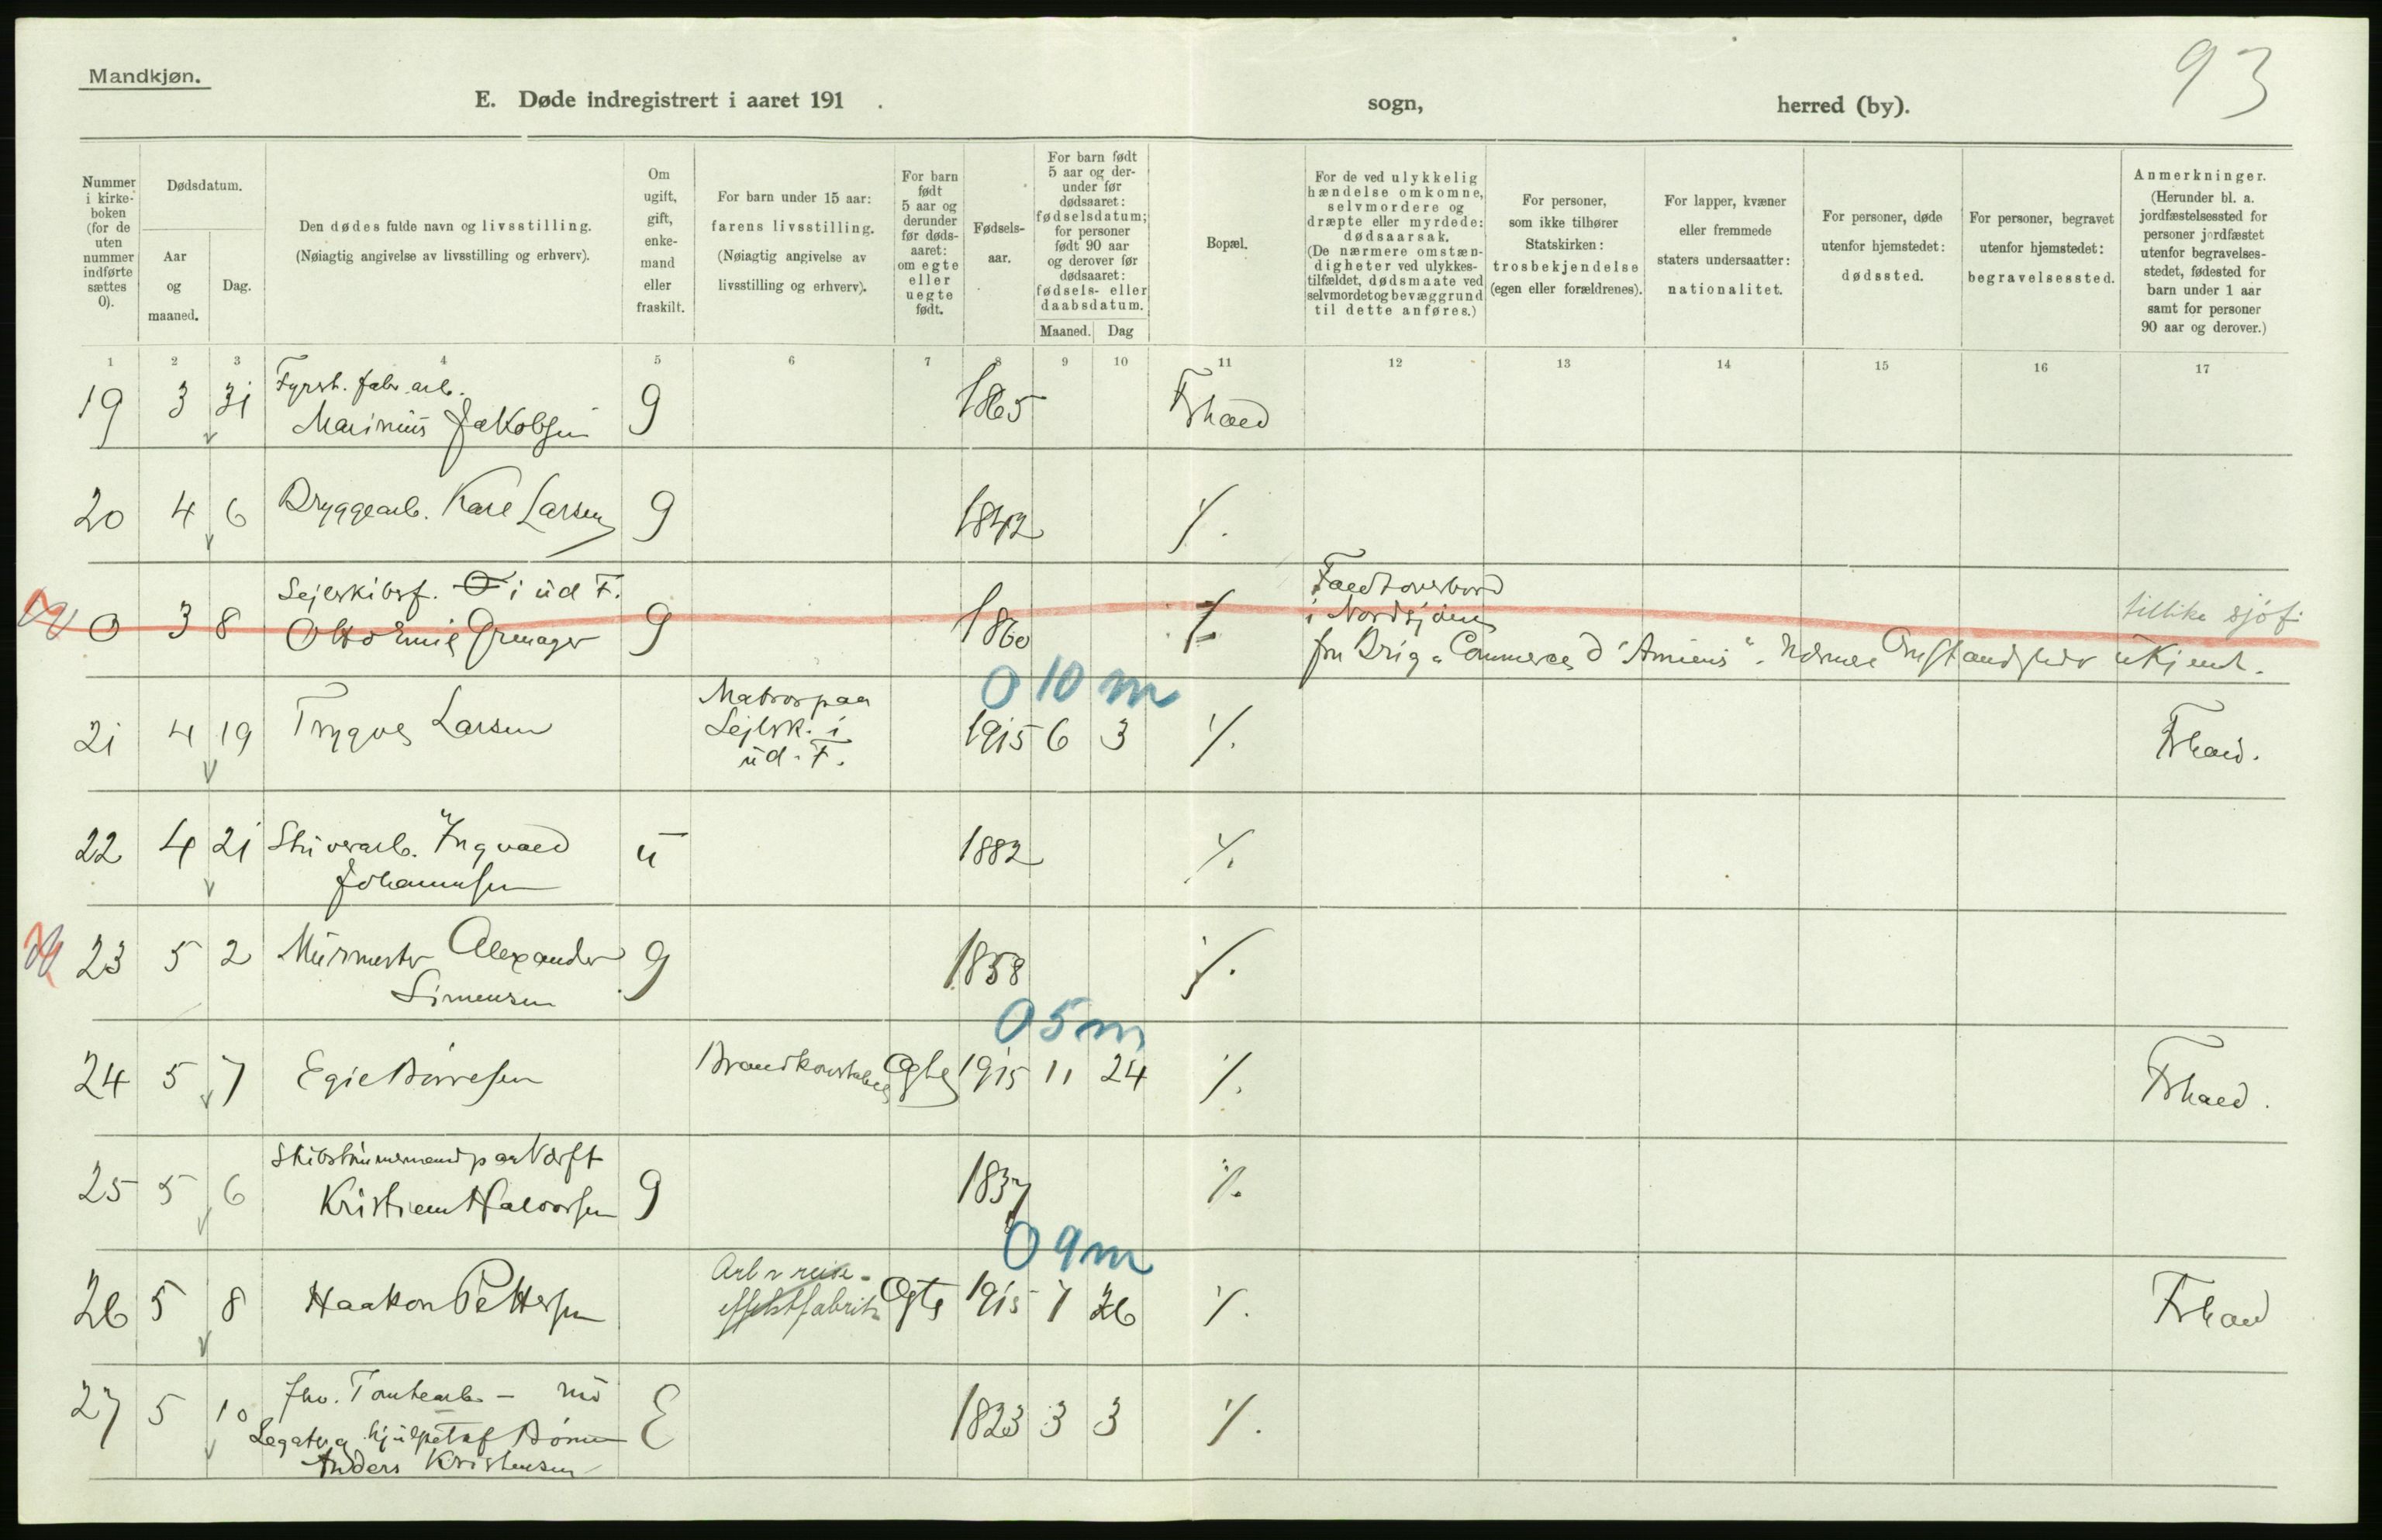 93
Mandkjøn.
E. Døde indregistrert i aaret 191 . sogn, herred (by).
Nummer i kirke-boken (for de uten nummer indførte sættes 0).
Dødsdatum.
Aar og maaned.
Dag.
Den dødes fulde navn og livsstilling.
(Nøiagtig angivelse av livsstilling og erhverv).
Om ugift, gift, enke-mand eller fraskilt.
For barn under 15 aar: farens livsstilling.
(Nøiagtig angivelse av livsstilling og erhverv).
For barn født 5 aar og derunder før døds-aaret: om egte eller uegte født.
Fødsels-aar.
For barn født 5 aar og der-under før dødsaaret: fødselsdatum; for personer født 90 aar og derover før dødsaaret: fødsels- eller daabsdatum.
Maaned. Dag
Bopæl.
For de ved ulykkelig hændelse omkomne, selvmordere og dræpte eller myrdede: dødsaarsak.
(De nærmere omstæn-digheter ved ulykkes-tilfældet, dødsmaate ved selvmordet og bevæggrund til dette anføres.)
For personer, som ikke tilhører Statskirken: trosbekjendelse (egen eller forældrenes).
For lapper, kvæner eller fremmede staters undersaatter: nationalitet.
For personer, døde utenfor hjemstedet: dødssted.
For personer, begravet utenfor hjemstedet: begravelsessted.
Anmerkninger.
(Herunder bl. a. jordfæstelsessted for personer jordfæstet utenfor begravelses-stedet, fødested for barn under 1 aar samt for personer 90 aar og derover.)
1 2 3 4 5 6 7 8 9 10 11 12 13 14 15 16 17
Fyrst. fabr. arb.
19 3 31 Marinius Jakobsen g 1865 Frhald
20 4 6 Bryggearb. Karl Larsen g 1842 ٪.
Sejlskibsf. i ud F. Faldt overbord
0 3 8 Otto Emil Grenager g 1860 ٪ i Nordsjøen tillike sjöf.
fra Brig "Commerce d'Amiens". Nærmere Omstændigheder ukjendt.
0 10 m
21 4 19 Trygve Larsen Matros paa Sejlsk. i ud. F. 1915 6 3 ٪. Frhald.
22 4 21 Stuverarb. Ingvald Johannesen u 1882 ٪.
23 5 2 Murmester Alexander Simensen g 1858 ٪.
0 5 m
24 5 7 Egil Børresen Brandkonstabel Egte 1915 11 24 ٪. Frhald.
Skibstømmermand paa Værft
25 5 6 Kristian Halvorsen g 1837 ٪.
0 9 m
26 5 8 Haakon Pettersen Arb v reise-effektfabrik Egte 1915 7 26 ٪. Frhald
27 5 10 fhv. Tomtearb. - nu
Legater og hjulpet af Børn E 1823 3 3 ٪.
Anders Kristensen